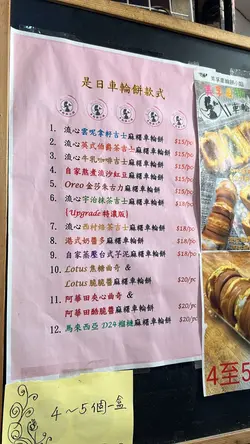 是日車輪餅款式
1. 流心雲呢拿軒吉士麻糬車輪餅 $15/pc
2. 流心英式伯爵茶吉士麻糬車輪餅 $15/pc
3. 流心牛乳咖啡吉士麻糬車輪餅 $15/pc
4. 自家熬煮流沙紅豆麻糬車輪餅 $15/pc
5. Oreo 金莎朱古力麻糬車輪餅 $15/pc
6. 流心宇治抹茶吉士麻糬車輪餅
(Upgrade 特濃版) $18/pc
7. 流心西村焙茶吉士麻糬車輪餅 $18/pc
8. 港式奶醬多麻糬車輪餅 $18/pc
9. 自家蒸壓台式芋泥麻糬車輪餅 $18/pc
10. Lotus 焦糖曲奇 &
Lotus 脆脆醬麻糬車輪餅 $20/pc
11. 阿華田夾心曲奇 &
阿華田酷脆醬麻糬車輪餅 $20/pc
12. 馬來西亞 D24 榴槤麻糬車輪餅 $20/pc
4～5個一盒
4至5